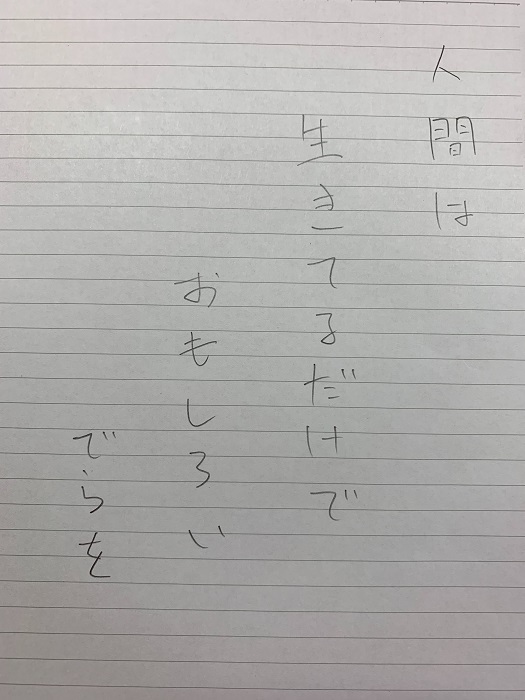 人間は
生きてるだけで
おもしろい
でらを